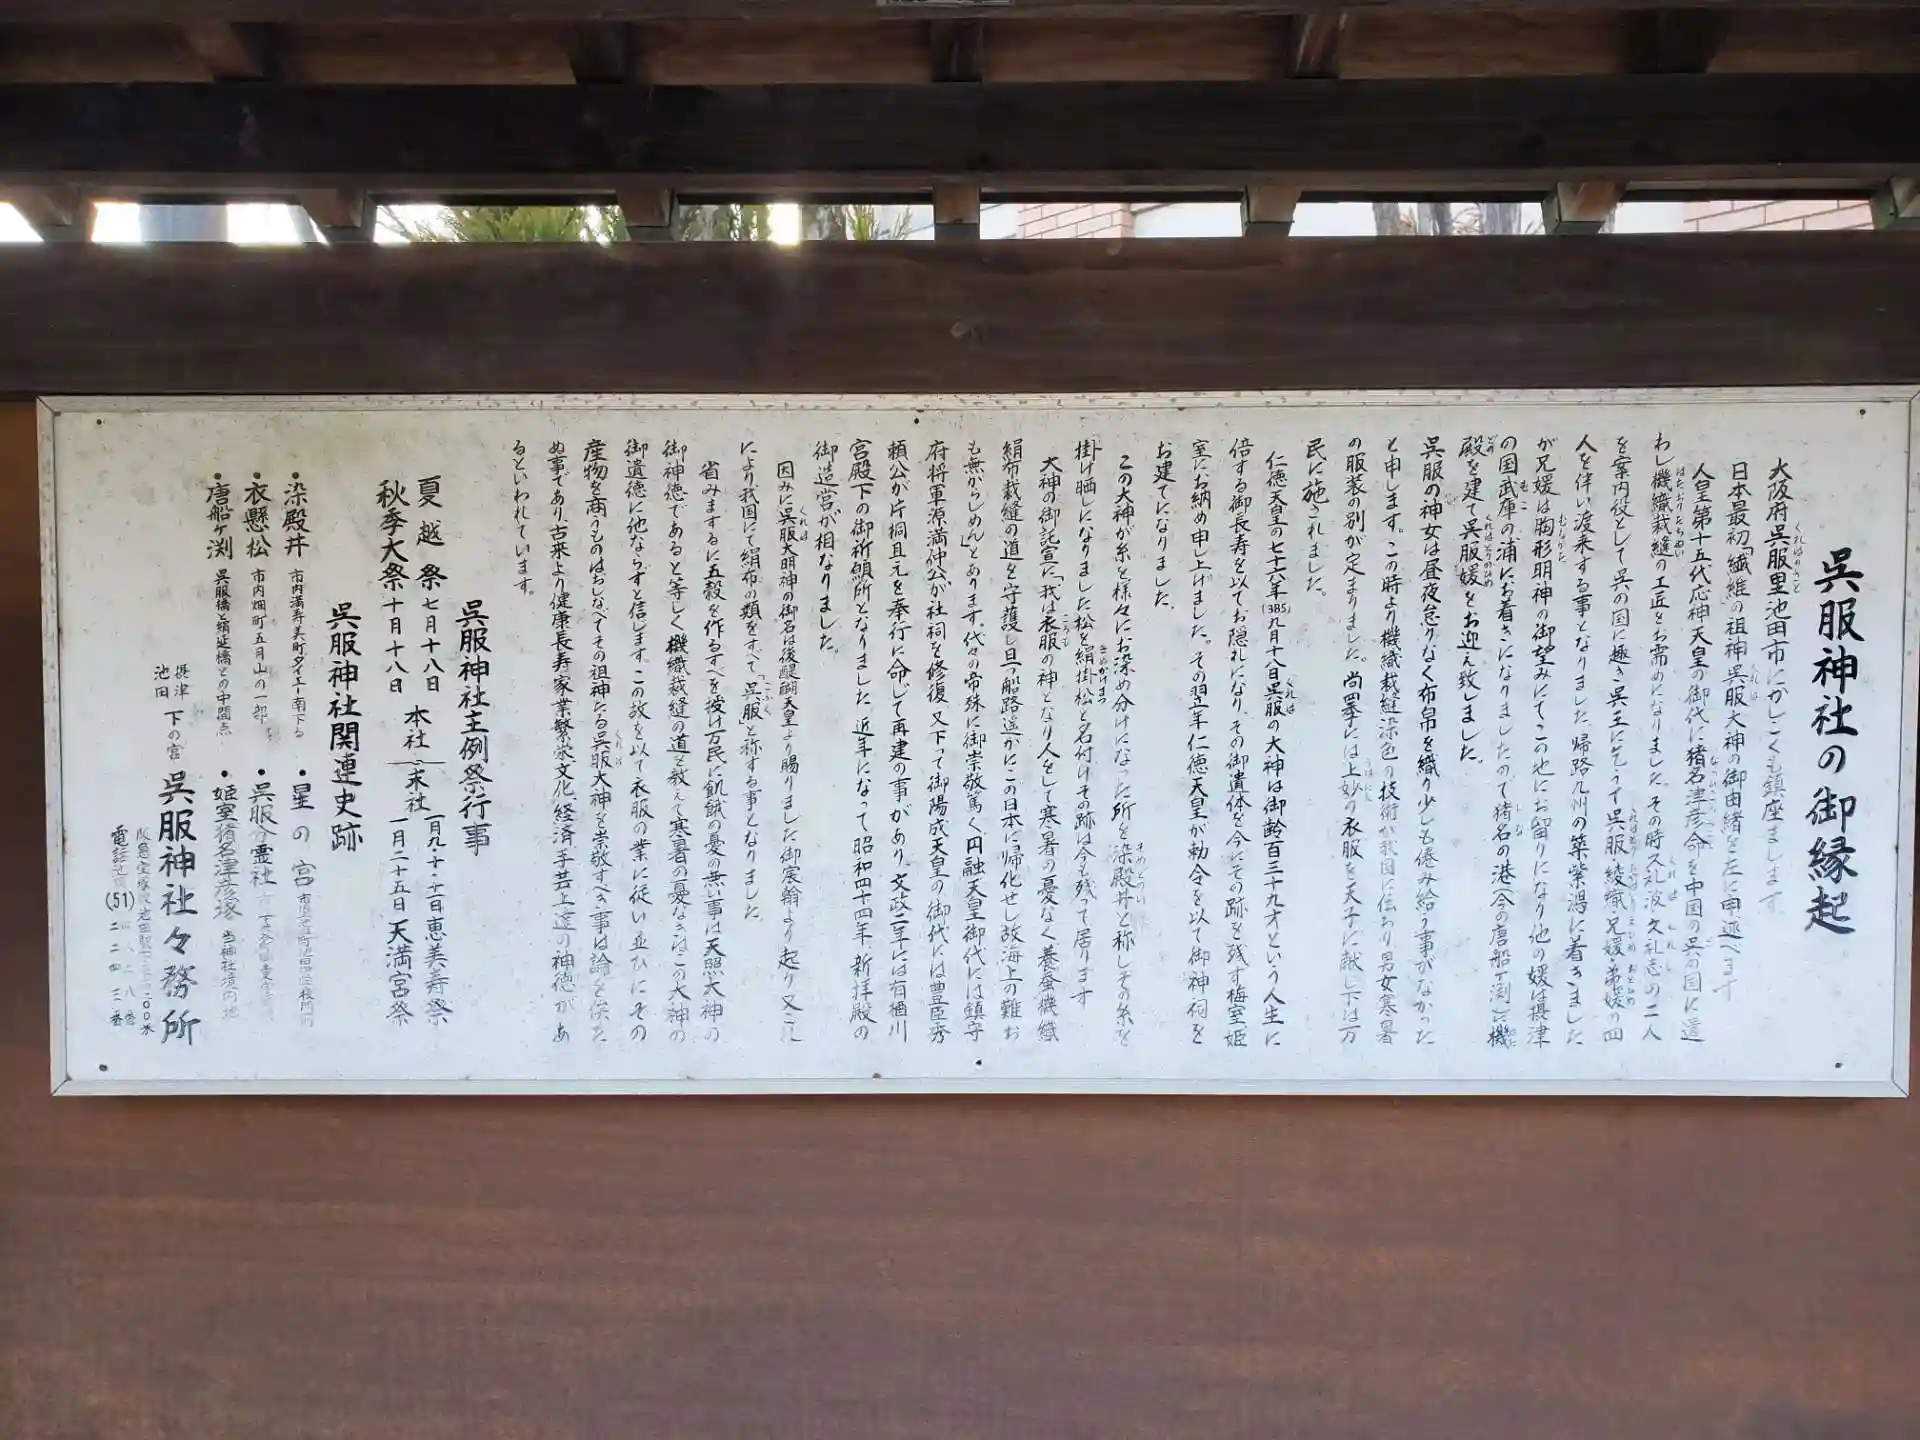 呉服神社の御縁起
大阪府呉服里池田市にかしこくも鎮座まします
日本最初「繊維の祖神」呉服大神の御由緒を左に申述べます
人皇第十五代応神天皇の御代に猪名津彦命を中国の呉の国に遣
わし機織裁縫の工匠をお需めになりました。その時久礼波、久礼志の二人
を案内役として呉の国に趣き呉王にこうて呉服、綾織、兄媛、弟媛の四
人を伴い渡来する事となりました。帰路九州の築紫潟に着きました
が兄媛は胸形明神の御望みにてこの地にお留りになり他の媛は摂津
の国武庫の浦にお着きになりましたので猪名の港(今の唐船ヶ渕)に機
殿を建て呉服媛をお迎え致しました。
呉服の神女は昼夜怠りなく布帛を織り少しも倦み給う事がなかった
と申します。この時より機織裁縫染色の技術が我国に伝わり男女寒暑
の服装の別が定まりました。尚畧には上妙の衣服を天子に献じ下は万
民に施されました。
仁徳天皇の七十六年(385)九月十八日呉服の大神は御齢百三十九才という人生に
倍する御長寿を以てお隠れになり、その御遺体を今にその跡を残す梅室姫
室にお納め申し上げました。その翌年仁徳天皇が勅令を以て御神祠を
お建てになりました。
この大神が糸を様々にお染め分けになった所を染殿井と称しその糸を
掛け晒しになりました松を絹掛松と名付けその跡は今も残って居ります
大神の御託宣に「我は衣服の神となり人をして寒暑の憂なく、養蚕機織
絹布裁縫の道を守護し且つ船路遥かにこの日本に帰化せし故海上の難お
も無からしめん」とあります。代々の帝殊に御崇敬篤く円融天皇御代には鎮守
府将軍源満仲公が社祠を修復又下って御陽成天皇の御代には豊臣秀
頼公が片桐且元を奉行に命じて再建の事があり、文政二年には有栖川
宮殿下の御祈願所となりました。近年になって昭和四十四年、新拝殿の
御造営が相なりました。
因みに呉服大明神の御名は後醍醐天皇より賜りました御宸翰より起り又これ
により我国にて絹布の類をすべて「呉服」と称する事となりました。
省みまするに五穀を作るすべを授け万民に飢餓の憂の無い事は天照大神の
御神徳であると等しく機織裁縫の道を教えて寒暑の憂なきはこの大神の
御遺徳に他ならずと信じます。この故を以て衣服の業に従い並びにその
産物を商うものはおしなべてその祖神たる呉服大神を崇敬すべき事は論を俟た
ぬ事であり古来より健康長寿、家業繁栄、文化、経済、手芸上達の神徳があ
るといわれています。
呉服神社主例祭行事
夏越祭 七月十八日 本社 末社 一月九・十・十一日恵美寿祭
秋季大祭 十月十八日 一月二十五日天満宮祭
呉服神社関連史跡
・染殿井 市内満寿美町ダイエー南下る ・星の宮
・衣懸松 市内畑町五月山の一部 ・呉服分霊社
・唐船ヶ渕 呉服橋と絹延橋との中間点 ・姫室猪名津彦塚 当神社境内地
摂津池田 下の宮 呉服神社々務所
阪急宝塚線池田駅
電話池田(51)二二四三番